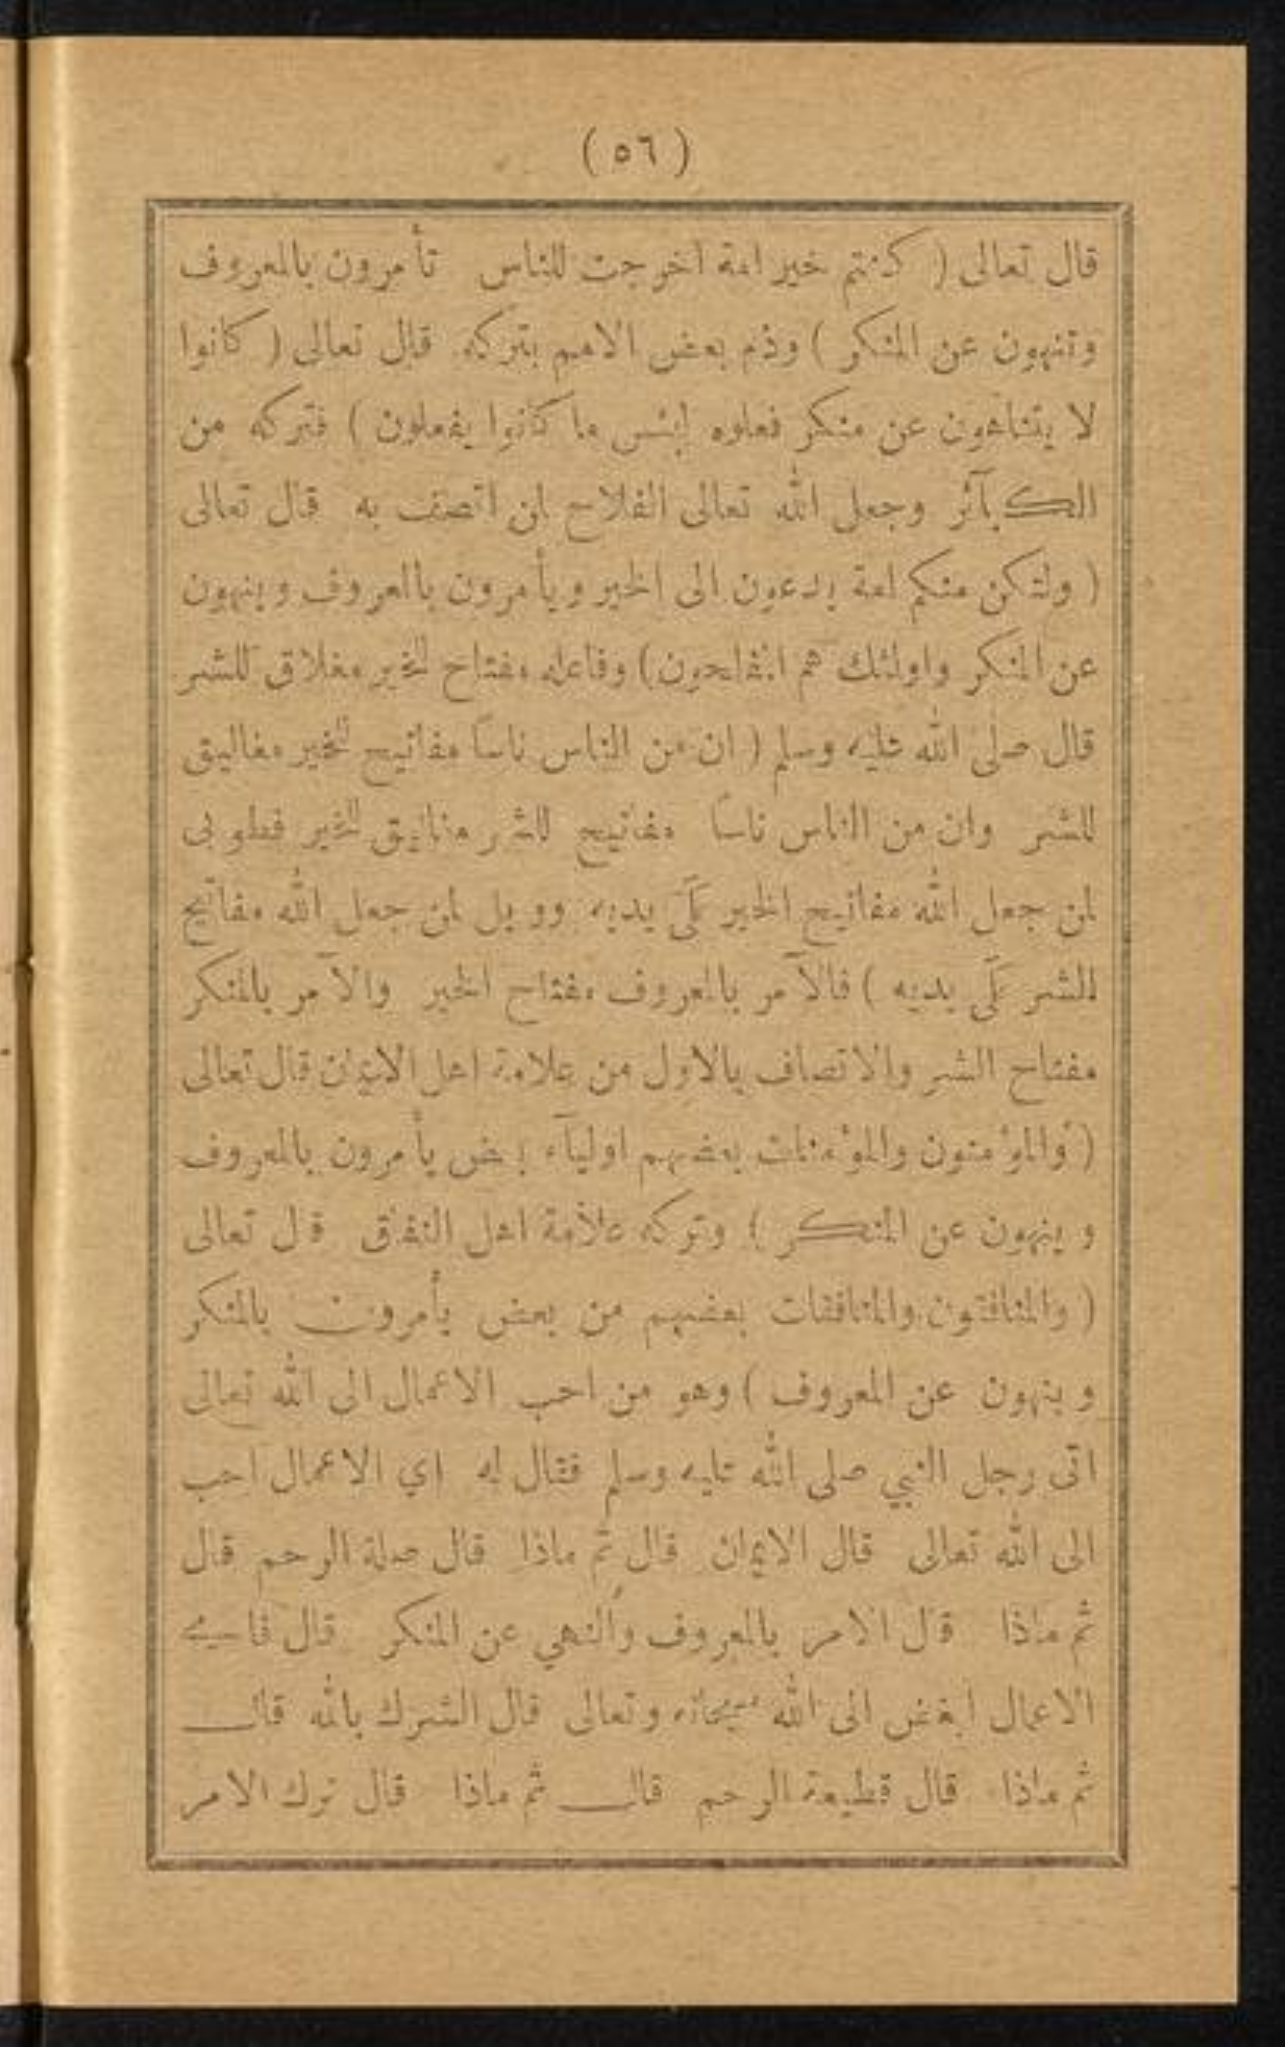 ( ٥٦ )
قال تعالى ( كنتم خير امة اخرجت للناس تأمرون بالمعروف
وتنهون عن المنكر ) وذم بعض الامم بتركه قال تعالى ( كانوا
لا يتناهون عن منكر فعلوه لبئس ما كانوا يفعلون ) فتركه من
الكبآئر وجعل الله تعالى الفلاح لمن اتصف به قال تعالى
( ولتكن منكم امة يدعون الى الخير ويأمرون بالمعروف وينهون
عن المنكر واولئك هم المفلحون ) وفاعله مفتاح للخير مغلاق للشر
قال صلى الله عليه وسلم ( ان من الناس ناسًا مفاتيح للخير مغاليق
للشر وان من الناس ناسًا مفاتيح للشر مغاليق للخير فطوبى
لمن جعل الله مفاتيح الخير عَلَى يديه وويل لمن جعل الله مفاتيح
للشر عَلَى يديه ) فالآمر بالمعروف مفتاح الخير والآمر بالمنكر
مفتاح الشر والاتصاف بالاول من علامة اهل الايمان قال تعالى
( والمؤمنون والمؤمنات بعضهم اوليآء بعض يأمرون بالمعروف
وينهون عن المنكر ) وتركه علامة اهل النفاق قال تعالى
( والمنافقون والمنافقات بعضهم من بعض يأمرون بالمنكر
وينهون عن المعروف ) وهو من احب الاعمال الى الله تعالى
اتى رجل النبي صلى الله عليه وسلم فقال له اي الاعمال احب
الى الله تعالى قال الايمان قال ثم ماذا قال صلة الرحم قال
ثم ماذا قال الامر بالمعروف والنهي عن المنكر قال فاي
الاعمال ابغض الى الله سبحانه وتعالى قال الشرك بالله قال
ثم ماذا قال قطيعة الرحم قال ثم ماذا قال ترك الامر